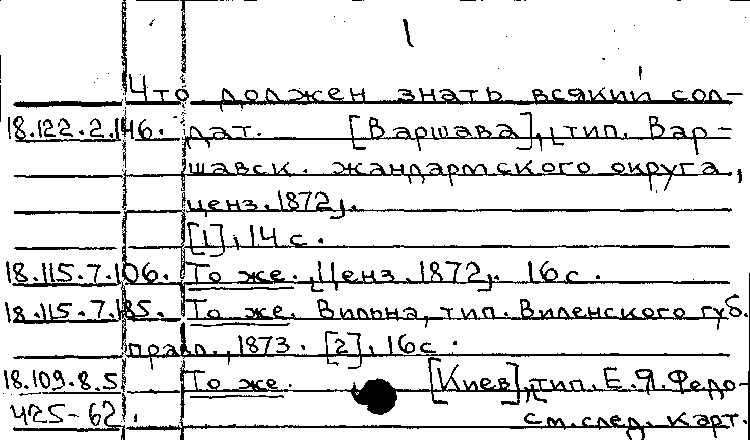 1
Что должен знать всякий сол-
18.122.2.146. дат. [Варшава], тип. Вар-
шавск. жандармского округа,
ценз. 1872.
[1], 14 с.
18.115.7.106. То же. Ценз. 1872. 16 с.
18.115.7.185. То же. Вильна, тип. Виленского губ.
правл., 1873. [2], 16 с.
18.109.8.5 То же. [Киев], тип. Е.Я. Федо-
425-62. См. след. карт.